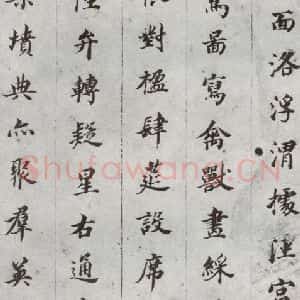 面洛浮渭據涇宮
啚寫禽獸畫綵
對楹肆筵設席
陛弁轉疑星右通
墳典亦聚羣英
Shufawang.CN